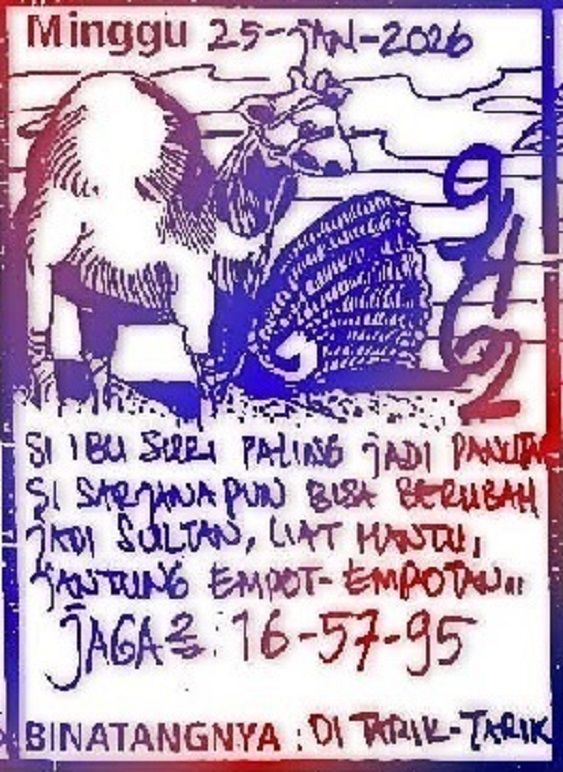 Minggu 25-JAN-2026
9
4
6
2
SI IBU SURI PALING JADI PANUTAN
SI SARJANA PUN BISA BERUBAH
JADI SULTAN, LIAT HANTU,
JANTUNG EMPOT-EMPOTAN..
JAGA2: 16-57-95
BINATANGNYA : DI TARIK-TARIK